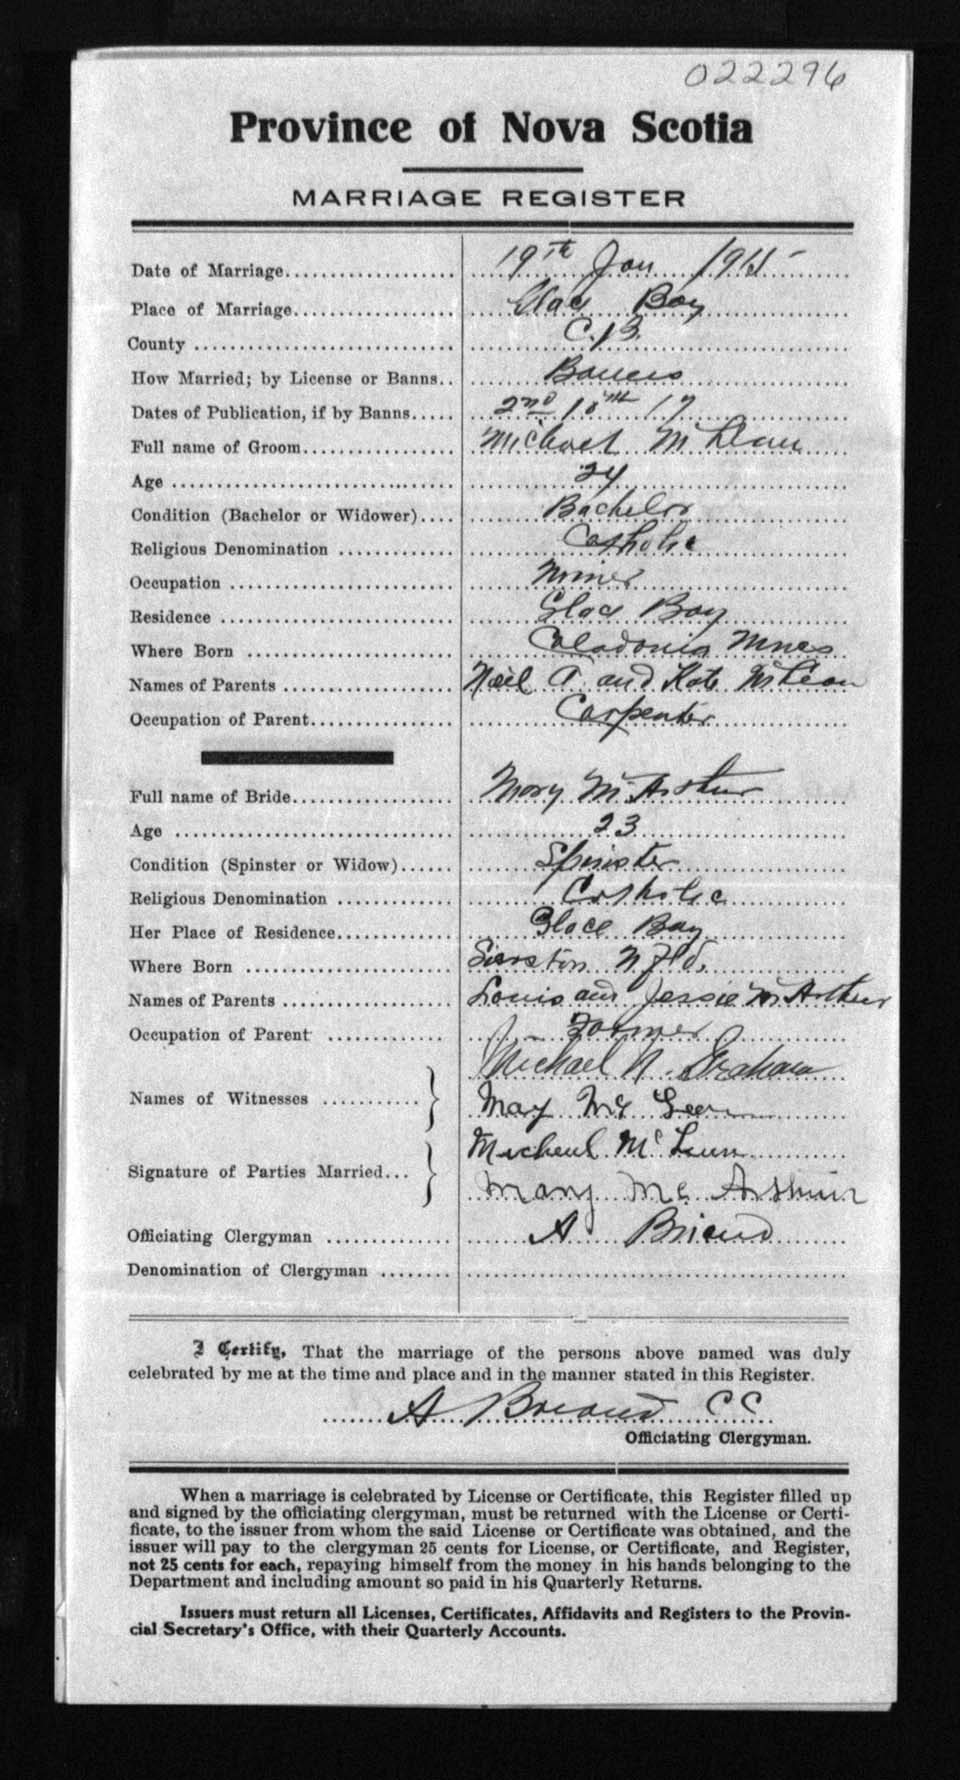 022296
Province of Nova Scotia
MARRIAGE REGISTER
Date of Marriage 19th Jan 1915
Place of Marriage Glace Bay
County C.B.
How Married; by License or Banns Banns
Dates of Publication, if by Banns 2nd 10th 17
Full name of Groom Michael McLean
Age 24
Condition (Bachelor or Widower) Bachelor
Religious Denomination Catholic
Occupation Miner
Residence Glace Bay
Where Born Caladonia Mines
Names of Parents Neil A. and Kate McLean
Occupation of Parent Carpenter
Full name of Bride Mary McArthur
Age 23
Condition (Spinster or Widow) Spinster
Religious Denomination Catholic
Her Place of Residence Glace Bay
Where Born Nfld.
Names of Parents Louis and Jessie McArthur
Occupation of Parent Farmer
Names of Witnesses Michael N. Graham
May Mc Lean
Signature of Parties Married Micheal McLean
Mary Mc Arthur
Officiating Clergyman A Briand
Denomination of Clergyman
I Certify, That the marriage of the persons above named was duly
celebrated by me at the time and place and in the manner stated in this Register.
A Briand CC
Officiating Clergyman.
When a marriage is celebrated by License or Certificate, this Register filled up
and signed by the officiating clergyman, must be returned with the License or Certi-
ficate, to the issuer from whom the said License or Certificate was obtained, and the
issuer will pay to the clergyman 25 cents for License, or Certificate, and Register,
not 25 cents for each, repaying himself from the money in his hands belonging to the
Department and including amount so paid in his Quarterly Returns.
Issuers must return all Licenses, Certificates, Affidavits and Registers to the Provin-
cial Secretary's Office, with their Quarterly Accounts.